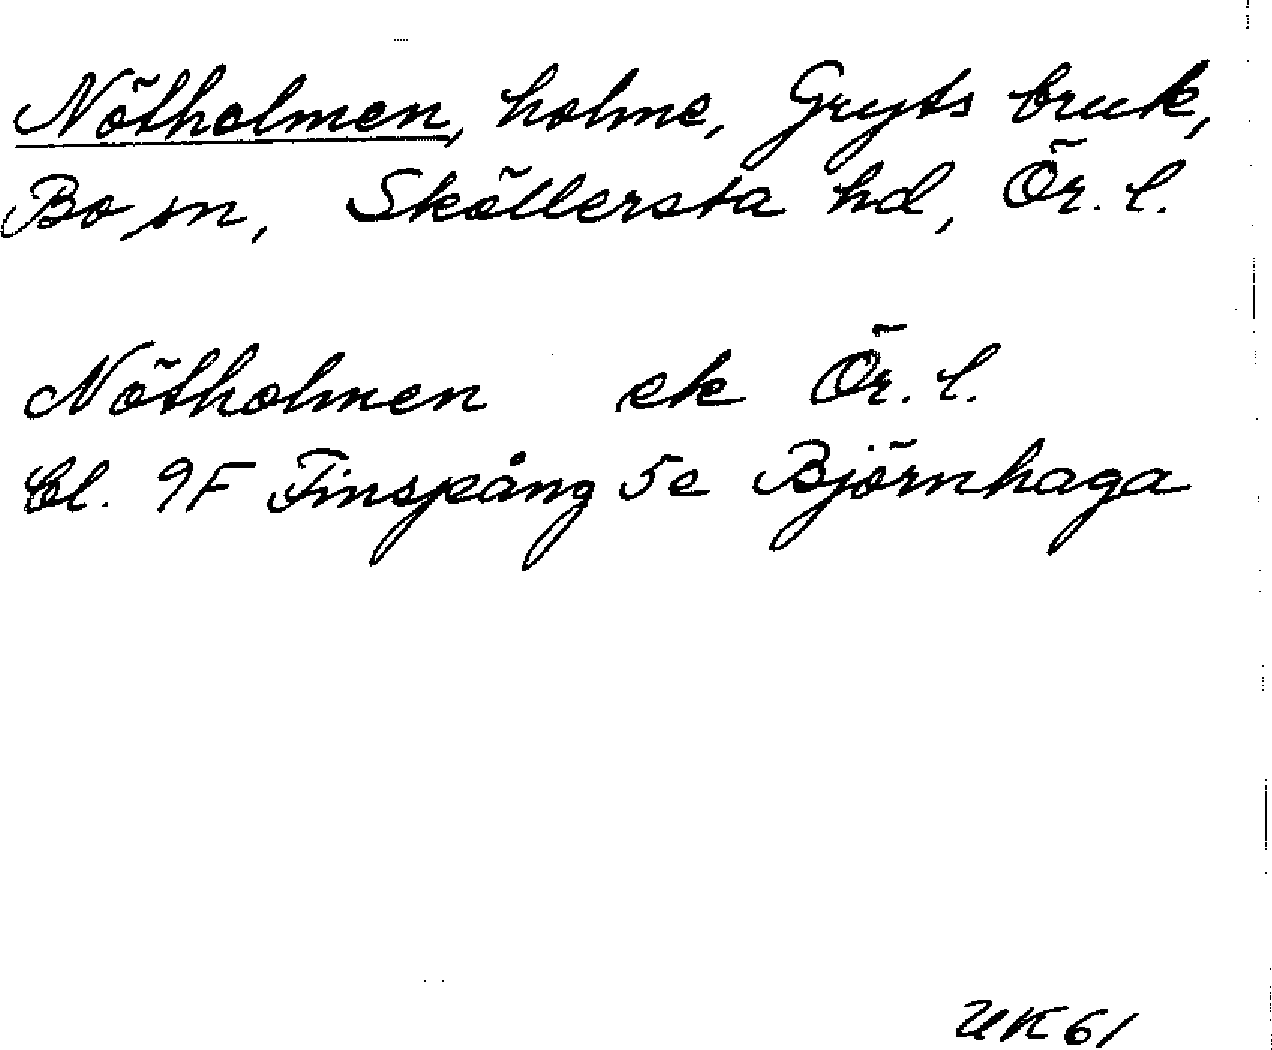 Nötholmen, holme, Gryts bruk,
Bo sn, Sköllersta hd, Ör. l.
Nötholmen ek Ör. l.
Bl. 9F Finspång 5e Björnhaga
UK 61